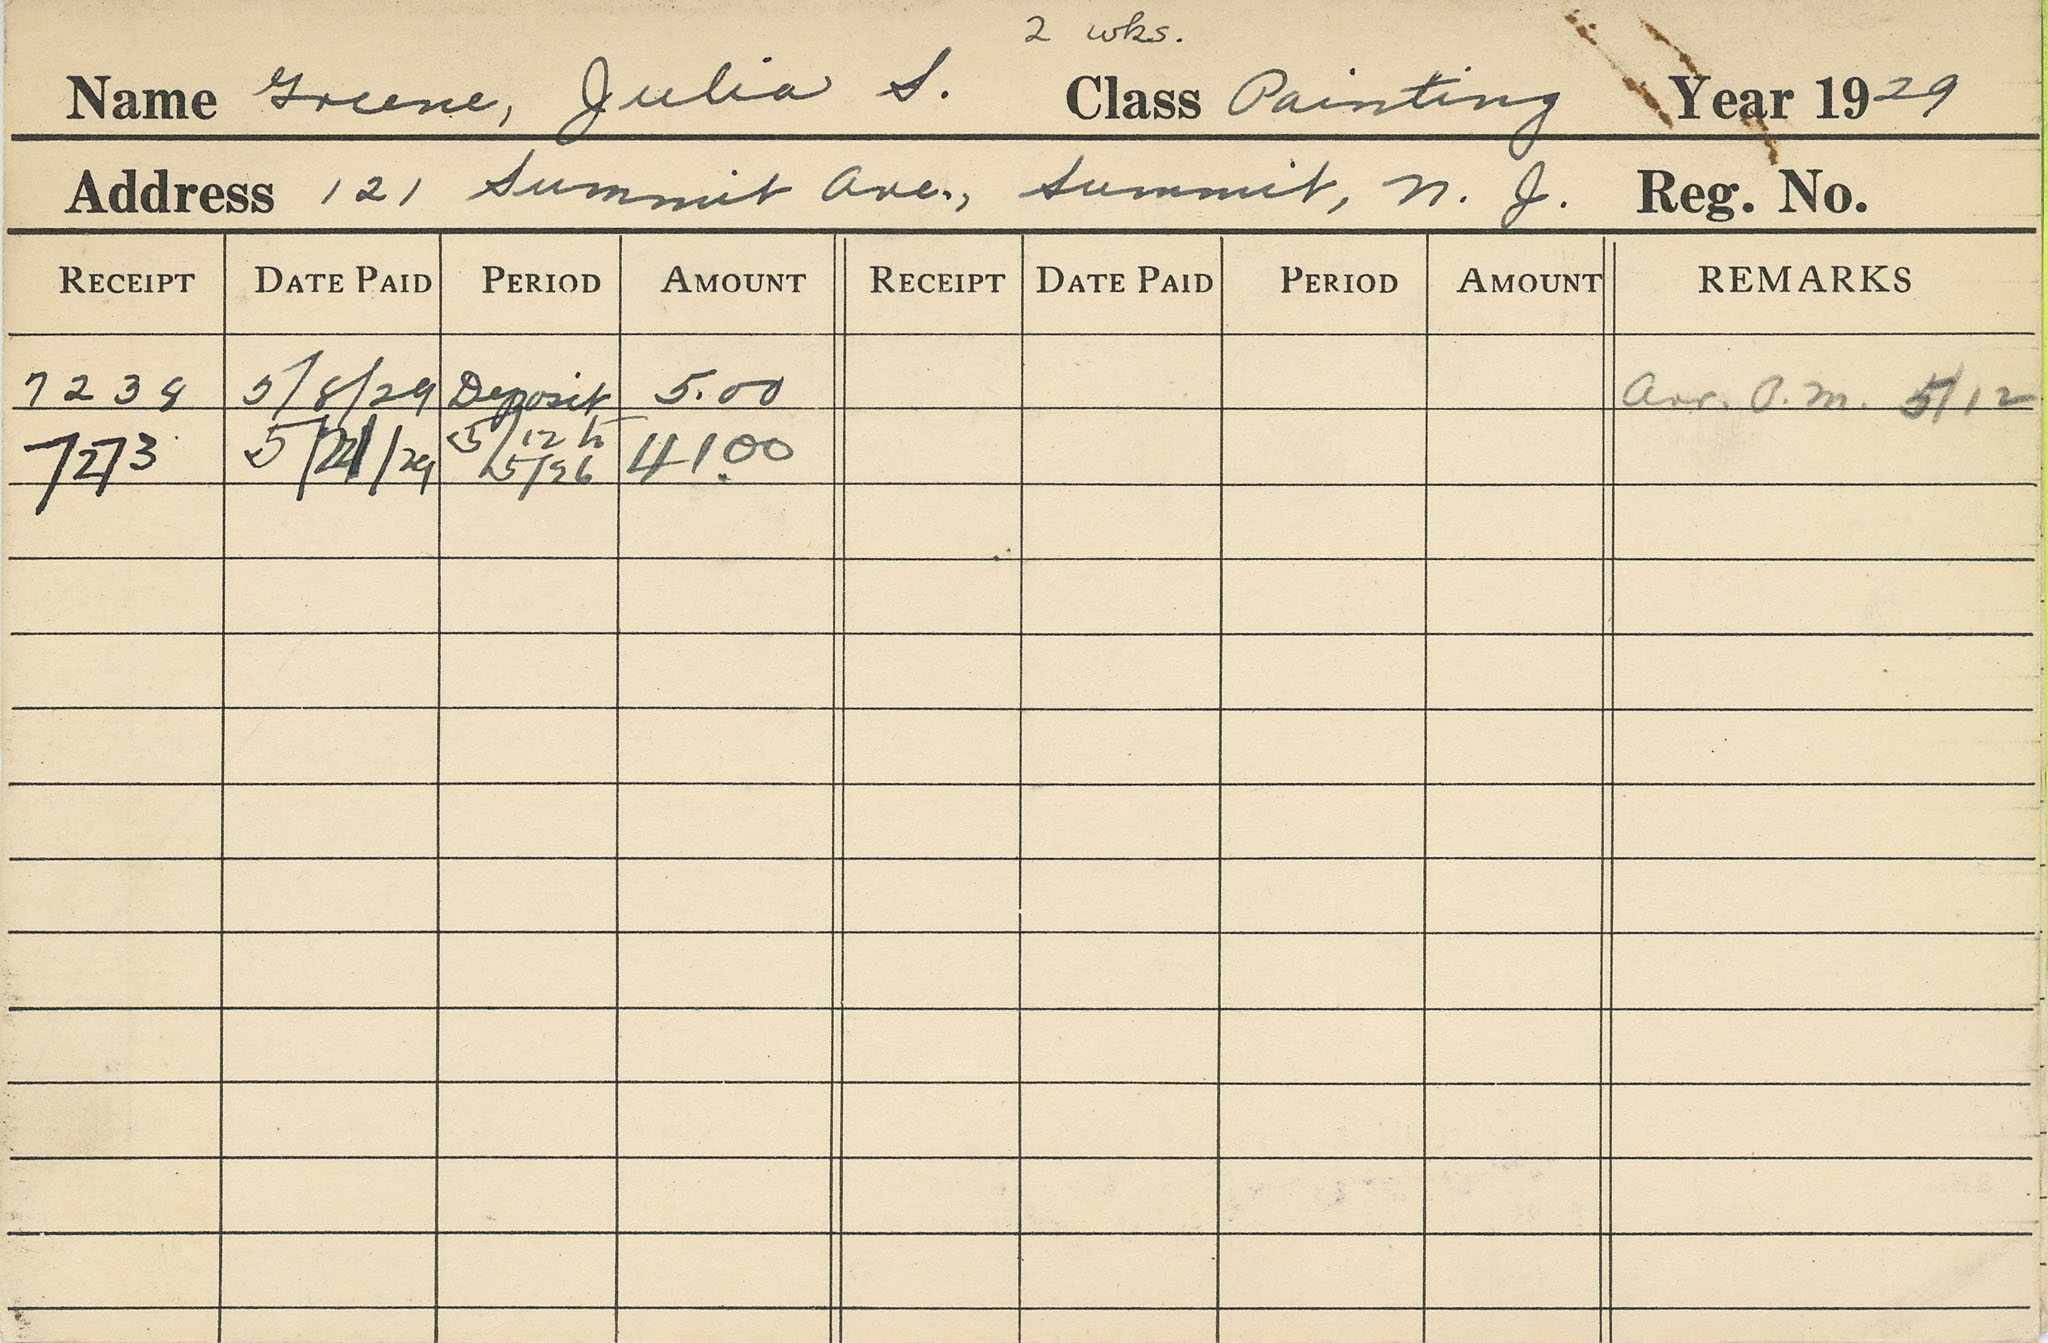 2 wks.
Name Greene, Julia S. Class Painting Year 1929
Address 121 Summit Ave., Summit, N. J. Reg. No.
RECEIPT DATE PAID PERIOD AMOUNT RECEIPT DATE PAID PERIOD AMOUNT REMARKS
7238 5/8/29 Deposit 5.00 Arr. P.M. 5/12
7273 5/21/29 5/12 to 5/26 41.00